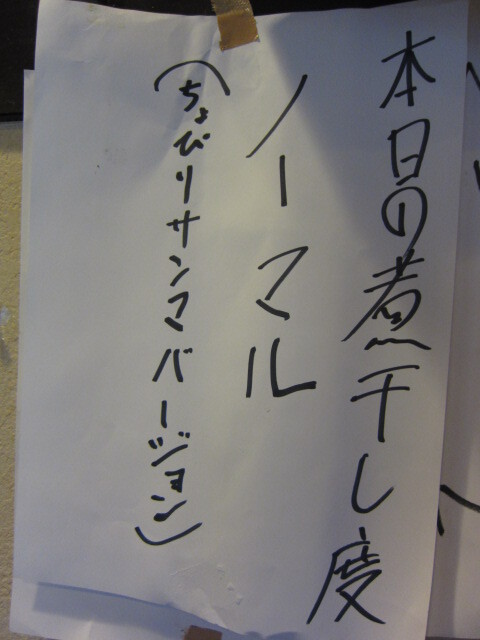 本日の煮干し度
ノーマル
(ちょびリサンマバージョン)